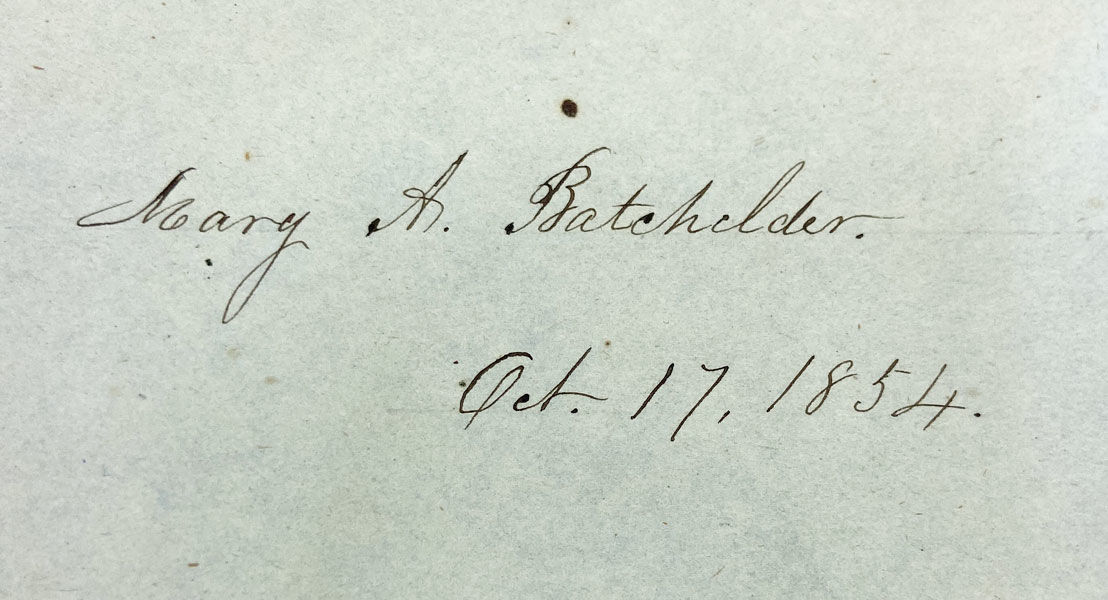 Mary A. Batchelder.
Oct. 17, 1854.